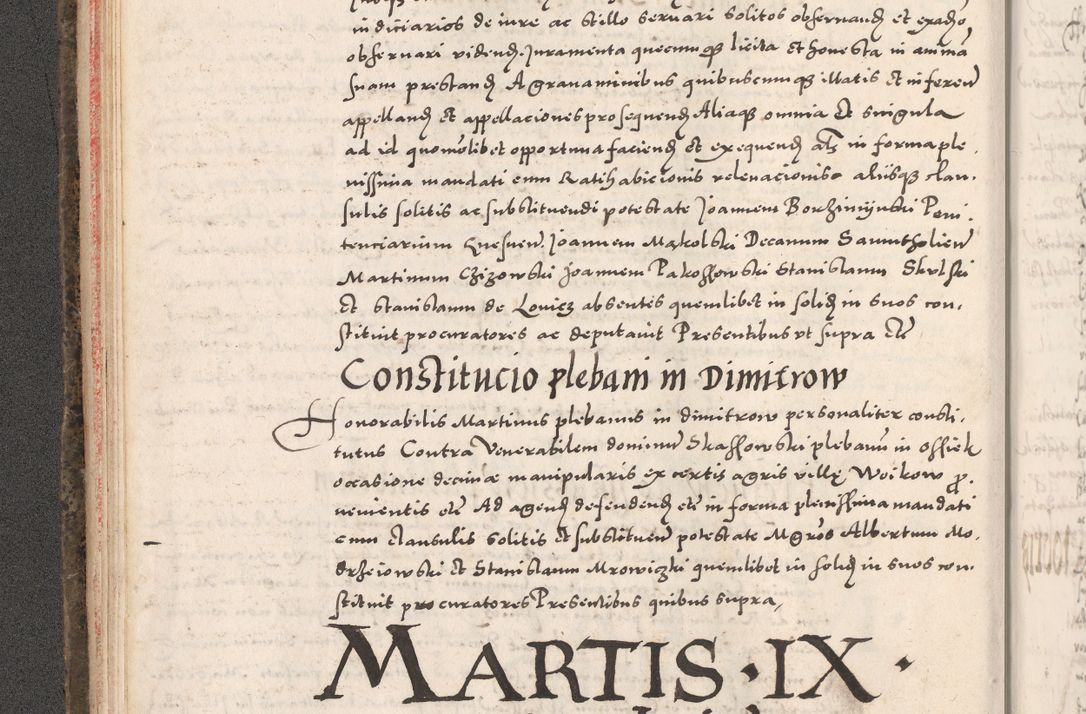 in diciarios de iure ac stillo servari solitos observand et exactio
observari vidend Juramenta quecumque licita et honesta in animã
suam prestand A gravaminibus quibuscumque illatis et inferen
appelland et appellaciones prosequend Aliaque omnia et singula
ad id quomolibet opportuna faciend et exequend als in forma ple,
nissima mandati cum Ratihabicionis relevacionisque aliisque clau,
sulis solitis ac substituendi potestate Joannem Borziminski Peni,
tenciarium Gnesnen. Joannem Makolski Decanum
Martinum Czizowski Joannem Pakossowski Stanislaum Skulski
et Stanislaum de Lovicz absentes quemlibet in solid in suos con,
stituit procuratores ac deputavit Presentibus ut supra etc
Constitucio plebani in Dimitrow
Honorabilis Martinus plebanus in dimitrow personaliter consti,
tutus Contra Venerabilem dominum Skassowski plebanum in Ossiek
occasione decimæ manipularis ex certis agris villę Woikow pro,
venientis etc Ad agend defendend etc in forma plenissima mandati
cum clausulis solitis et substituen potestate Mgros Albertum Mo,
drzeiowski et Stanislaum Mrowiczki quemlibet in solid in suos con,
stituit procuratores Presentibus quibus supra,
MARTIS · IX ·